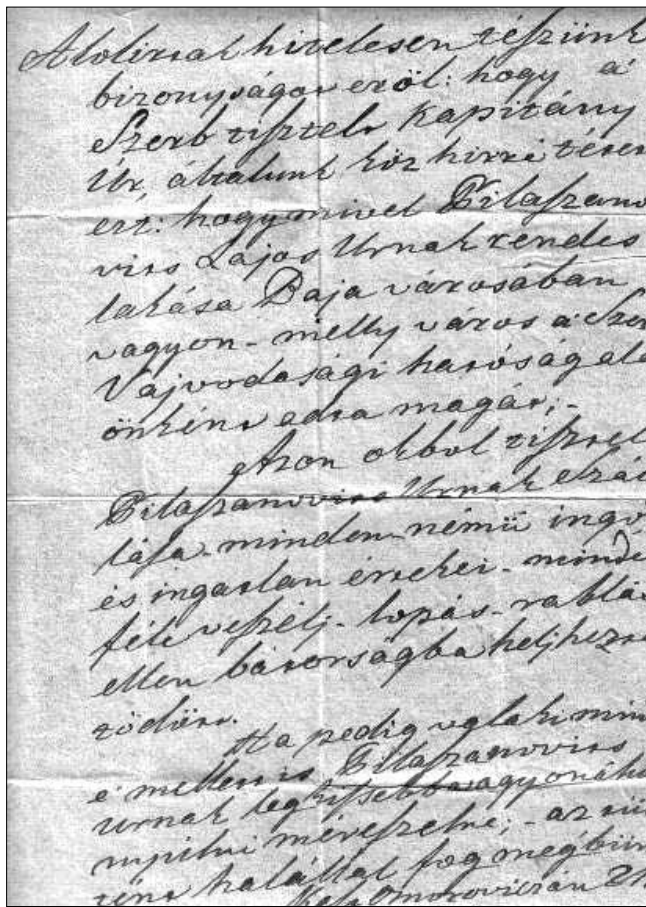 Alolirtak hitelesen tészünk
bizonyságot eröl: hogy a'
Szerb tisztelt Kapitány
Úr, általunk köz hirré téteti
ezt: hogy mivel Pilaszano
vits Lajos Urnak rendes
lakása Baja városában
vagyon - melly város a' Szer
Vajvodasági hatóság alá
önként adta magát; -
Azon okbol tisztel
Pilaszanovits Urnak
lása - minden - némü ingó
és ingatlan értékei - minden
féle veszélj - lopás - rablás
ellen bátorságba heljhezte
tödött.
Ha pedig valaki mind
e' mellett is Pilaszanovits
Urnak legkissebb vagyonáh
nyúlni mérészelne; - az
tént halállal fog megbün